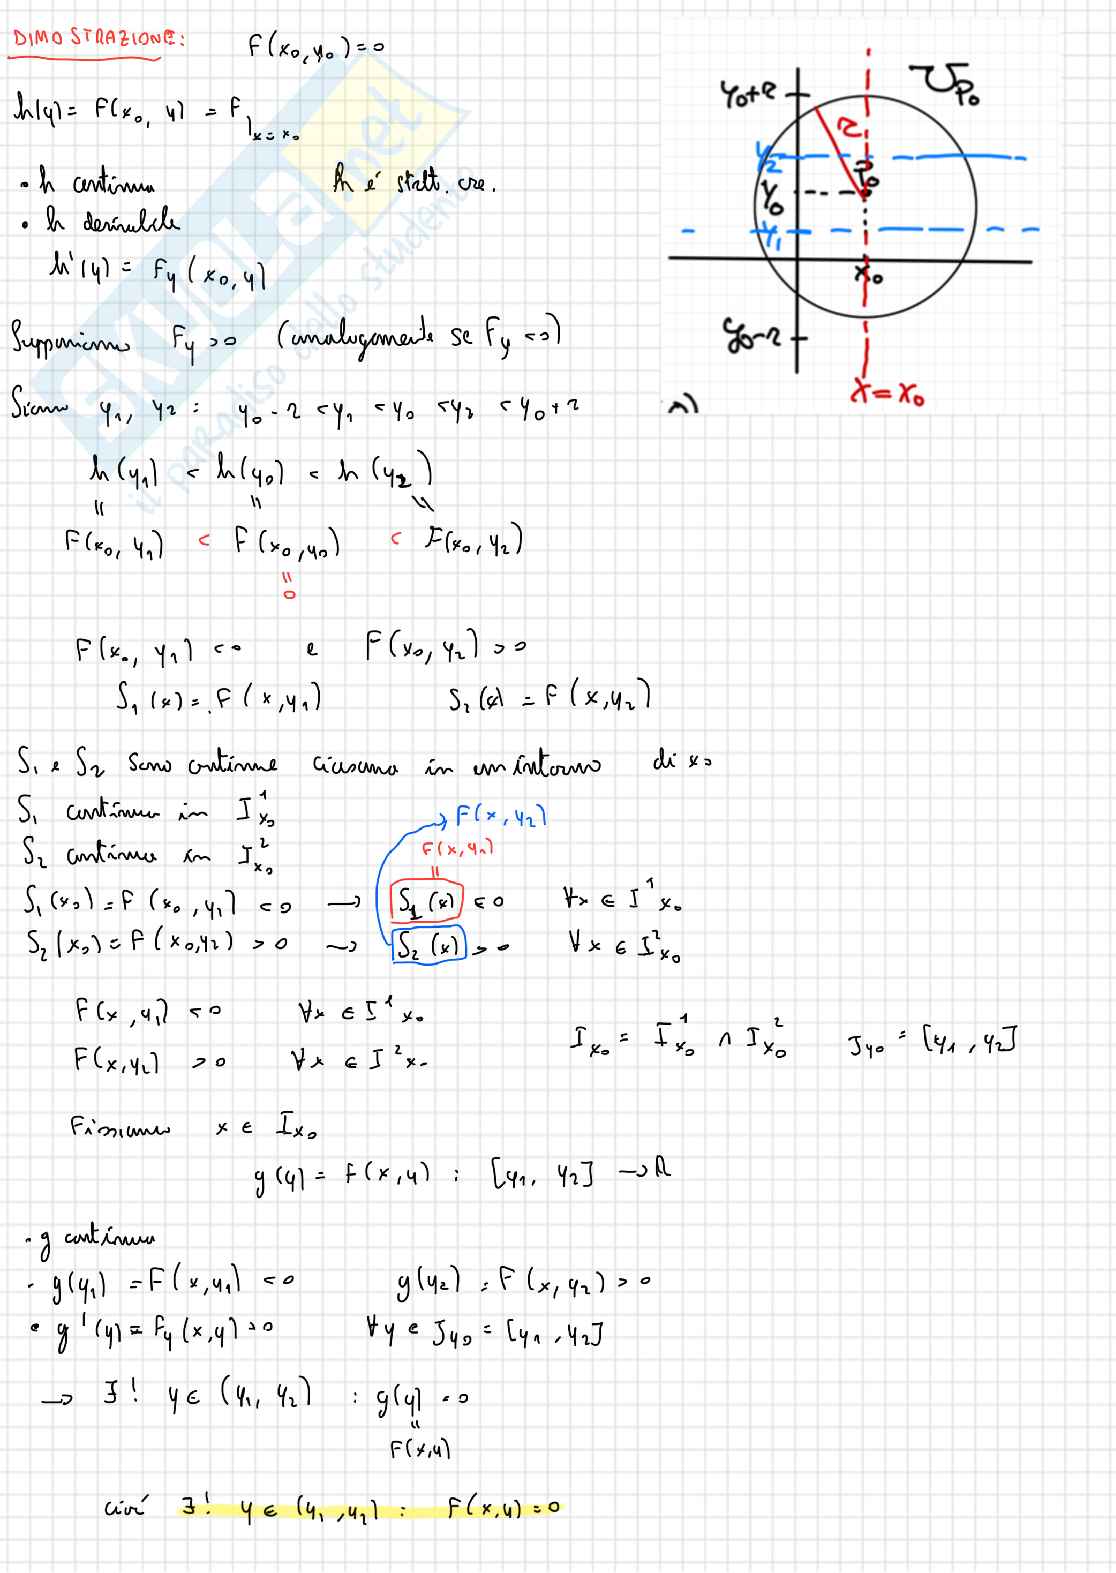 DIMOSTRAZIONE: F(x₀,y₀)=0
h(y)= F(x₀, y) = F|x=x₀
• h continua h é strett. cre.
• h derivabile
h'(y) = Fy (x₀,y)
Supponiamo Fy >0 (analogamente se Fy <0)
Siano y₁, y₂ : y₀-r <y₁ <y₀ <y₂ <y₀+r
h(y₁) < h(y₀) < h(y₂)
= = =
F(x₀, y₁) < F(x₀,y₀) < F(x₀, y₂)
=
0
F(x₀, y₁) <0 e F(x₀,y₂) >0
S₁(x)= F(x,y₁) S₂(x) = F(x,y₂)
S₁ e S₂ sono continue ciascuna in un intorno di x₀
S₁ continua in I¹x₀ F(x,y₂)
S₂ continua in I²x₀ F(x,y₁)
=
S₁(x₀)=F(x₀,y₁) <0 → S₁(x) <0 ∀x ∈ I¹x₀
S₂(x₀)=F(x₀,y₂) >0 → S₂(x) >0 ∀x ∈ I²x₀
F(x,y₁) <0 ∀x ∈ I¹x₀
F(x,y₂) >0 ∀x ∈ I²x₀
Ix₀ = I¹x₀ ∩ I²x₀ Jy₀ = [y₁,y₂]
Fissiamo x ∈ Ix₀
g(y)= F(x,y) : [y₁, y₂] → R
• g continua
• g(y₁) =F(x,y₁) <0 g(y₂) = F(x,y₂) >0
• g'(y)= Fy(x,y)>0 ∀y ∈ Jy₀ = [y₁,y₂]
→ ∃! y ∈ (y₁, y₂) : g(y) =0
=
F(x,y)
cioé ∃! y ∈ (y₁,y₂) : F(x,y)=0
y₀+r
Up₀
r
y₂
P₀
y₀
y₁
x₀
y₀-r
x=x₀
a)
SKUOLA.net
il paradiso dello studente